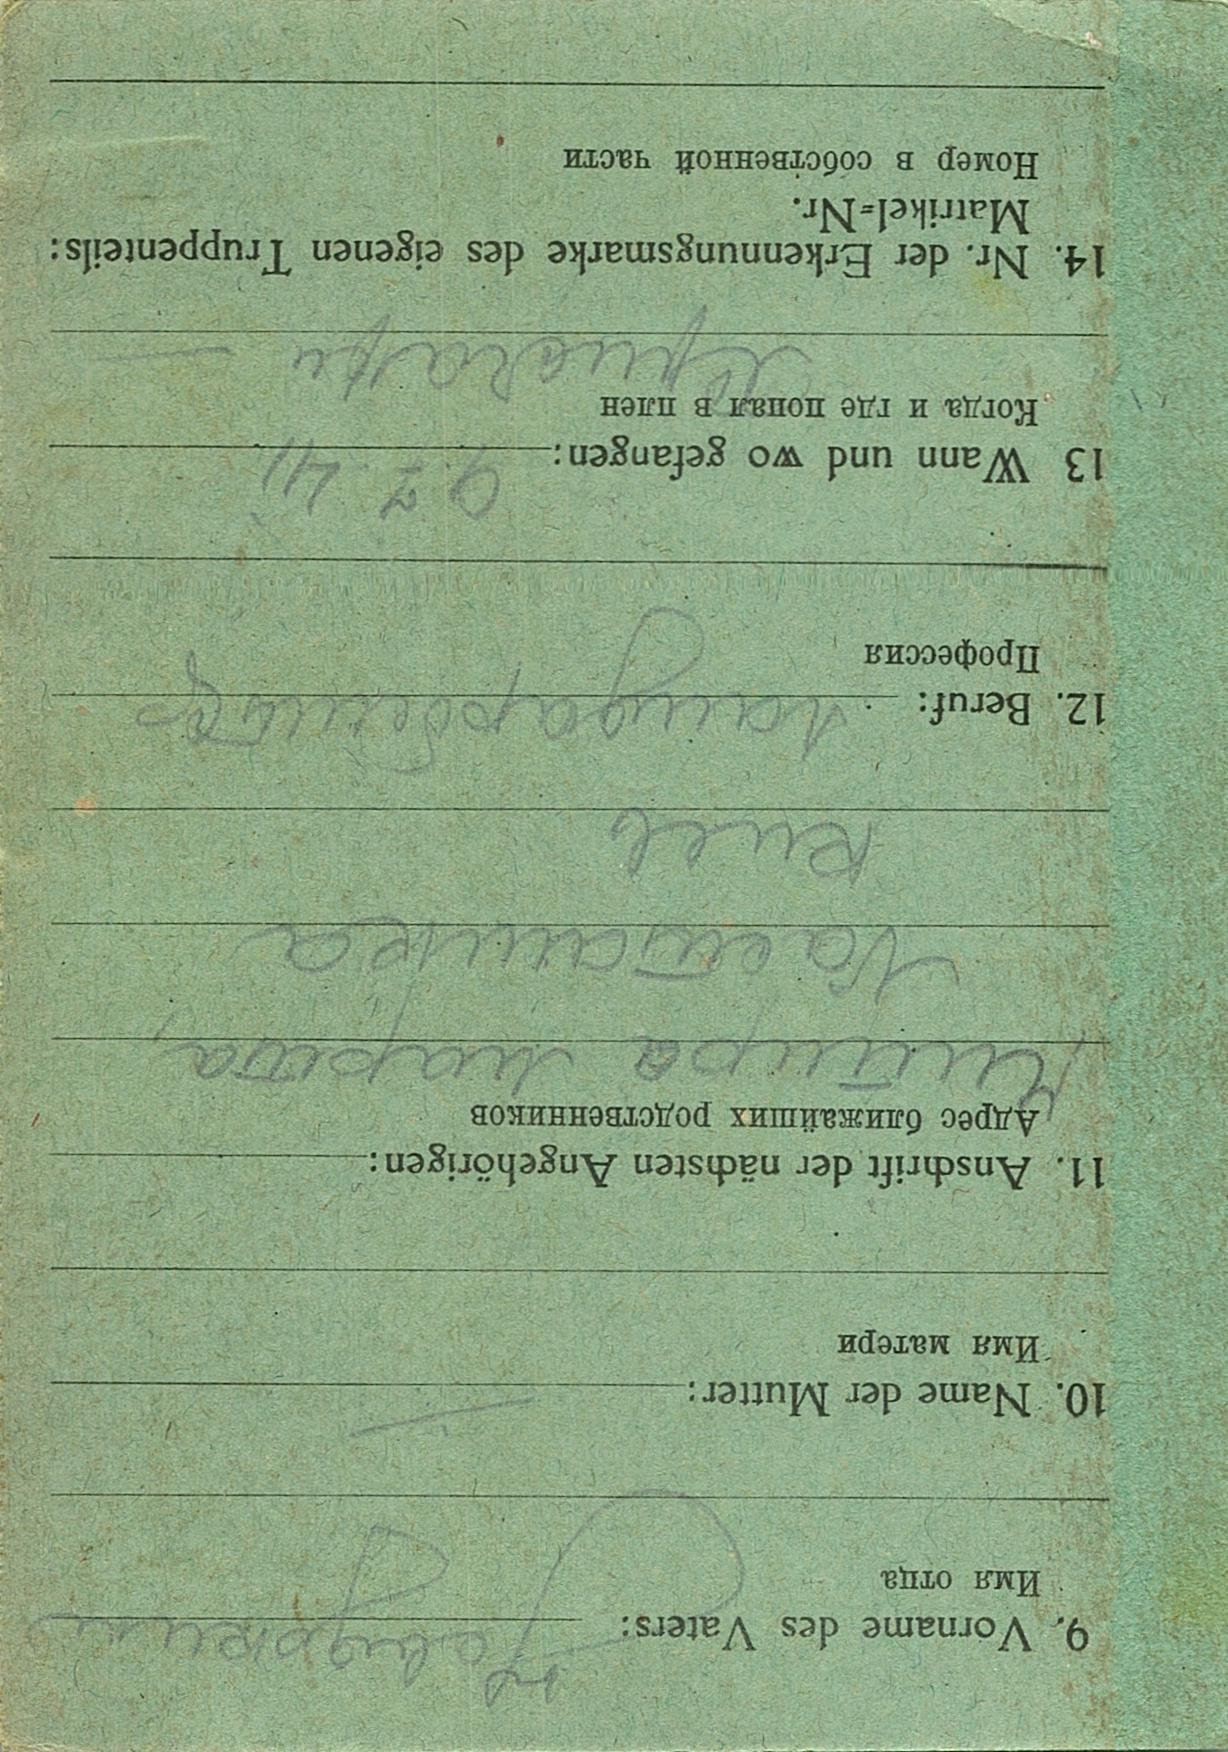 9. Vorname des Vaters:
Имя отца
10. Name der Mutter: —
Имя матери
11. Anschrift der nächsten Angehörigen:
Адрес ближайших родственников
Киев
12. Beruf:
Профессия
13 Wann und wo gefangen: 9.7.41
Когда и где попал в плен
14. Nr. der Erkennungsmarke des eigenen Truppenteils:
Matrikel=Nr.
Номер в собственной части